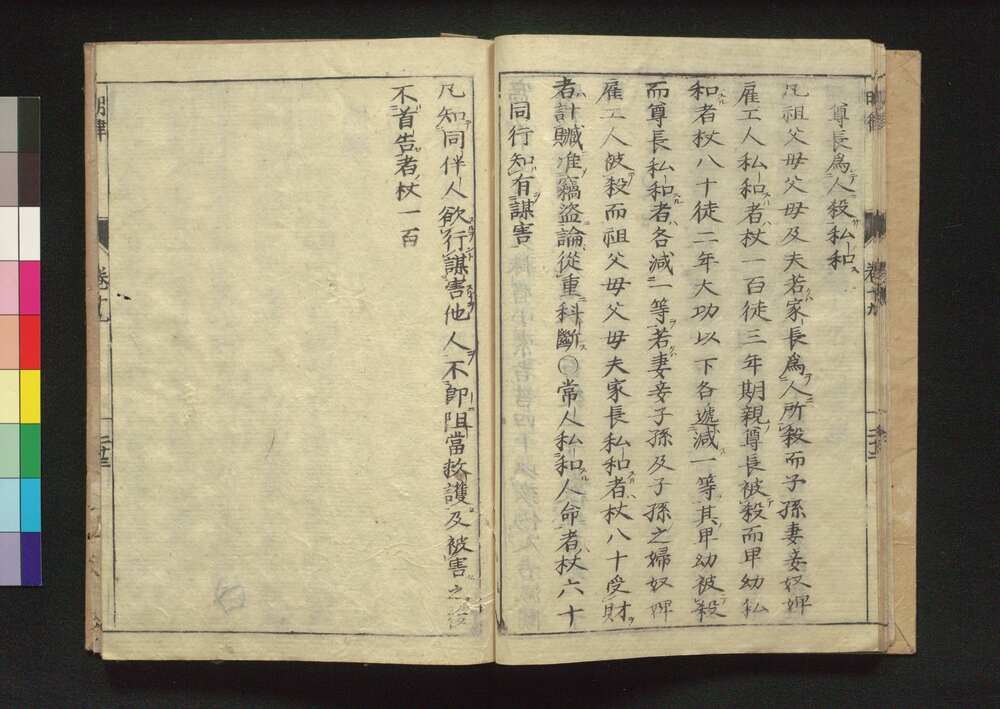 尊長為人殺私和
凡祖父母父母及夫若家長為人所殺而子孫妻妾奴婢
雇工人私和者杖一百徒三年期親尊長被殺而卑幼私
和者杖八十徒二年大功以下各遞減一等其卑幼被殺
而尊長私和者各減一等若妻妾子孫及子孫之婦奴婢
雇工人被殺而祖父母父母夫家長私和者杖八十受財
者計贓准竊盗論從重科斷○常人私和人命者杖六十
同行知有謀害
凡知同伴人欲行謀害他人不即阻當救護及被害之後
不首告者杖一百
明律
卷十九